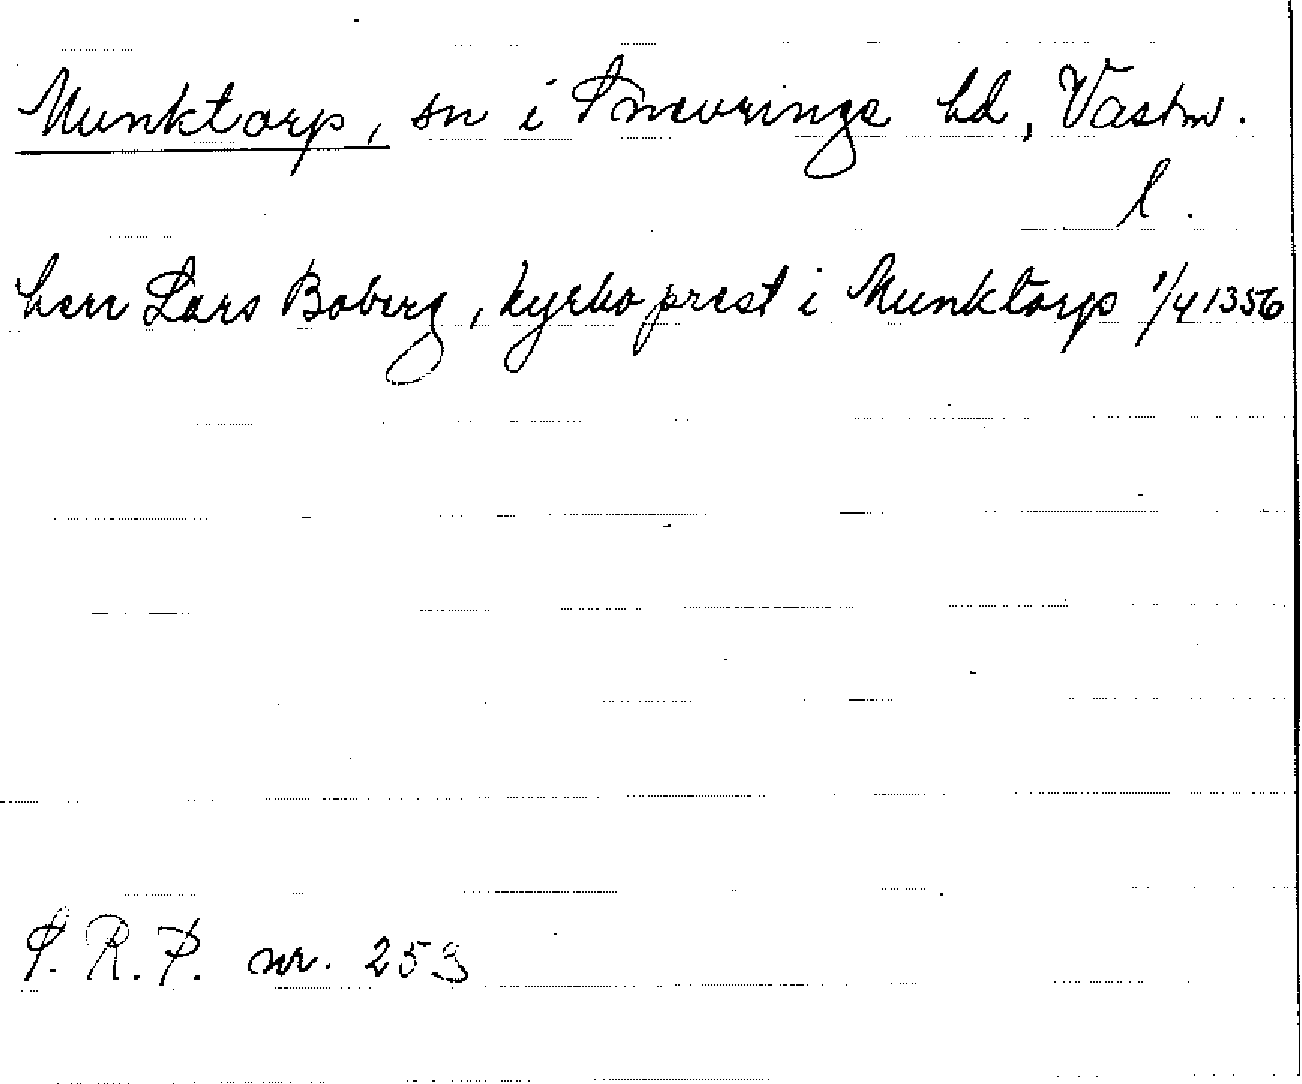 Munktorp, sn i Snevringe hd, Västm.
l.
herr Lars Boberg, kyrko prest i Munktorp 1/4 1356
S. R. P. nr. 259